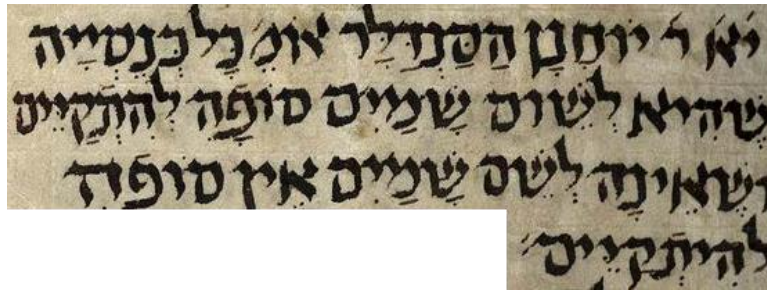 יא ר׳ יוֹחָנָן הַסַּנְדְּלָר אוֹמֵ׳ כָּל כְּנֵסִייָה
שֶׁהִיא לְשׁוּם שָׁמַיִם סוֹפָהּ לְהִתְקַיֵּים
וְשֶׁאֵינָהּ לְשֵׁם שָׁמַיִם אֵין סוֹפָהּ
לְהִיתְקַיֵּים׳